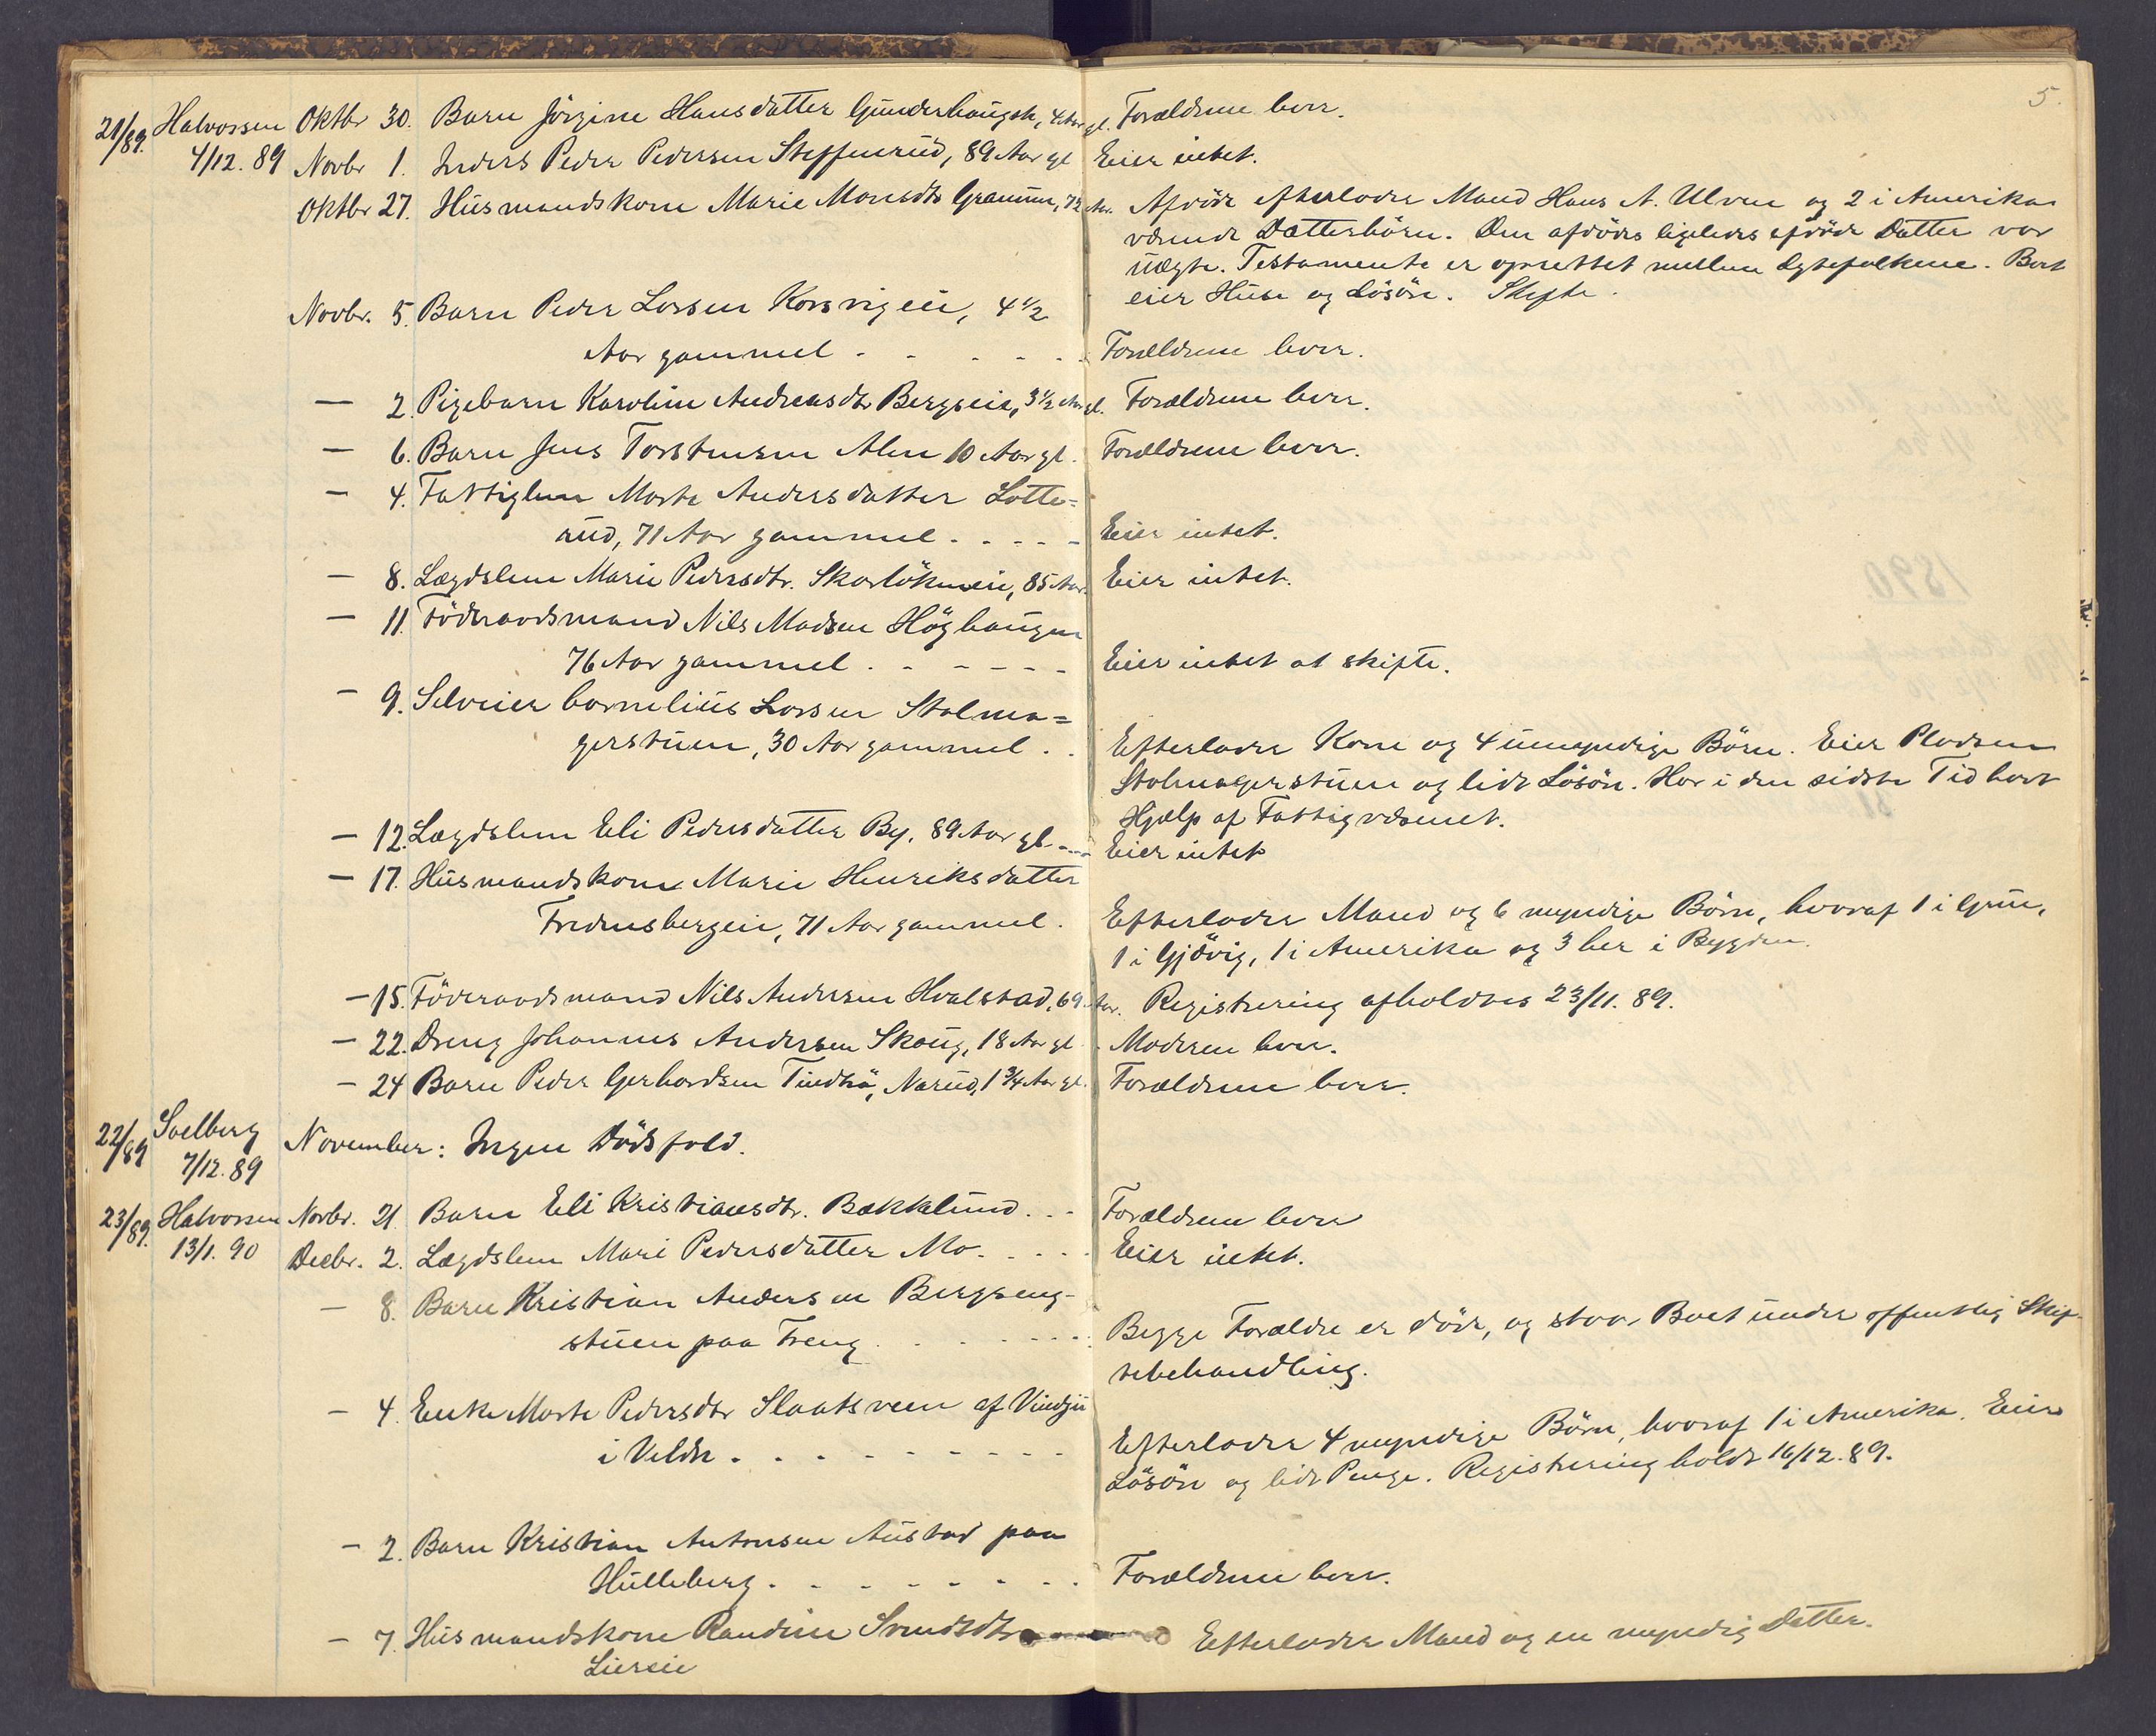 5.
21/89. Halvorsen Oktbr 30. Barn Jörgine Hansdatter Gunderhaugen, 4 Aar gl. Forældrene lever.
4/12. 89 Novbr 1. Inders Peder Pedersen Steffenrud, 89 Aar gl Eier intet.
Oktbr 27. Husmandskone Marie Monsdtr Gramm, 72 Aar. Afdöde efterlader Mand Hans A. Ulven og 2 i Amerika
værende Datterbörn. Den afdödes ligeledes afdöde Datter var
uægte. Testamente er oprettet mellem Ægtefolkene. Boet
eier Huse og Lösöre. Skifte.
Novbr. 5. Barn Peder Larsen Korsvigeie, 4 1/2
Aar gammel - - - - - Forældrene lever.
— 2. Pigebarn Karoline Andreasdtr Bergseie, 3 1/2 Aar gl. Forældrene lever.
— 6. Barn Jens Torstensen Alm 10 Aar gl. Forældrene lever.
— 4. Fattiglem Marte Andersdatter Lotte=
rud, 71 Aar gammel - - - - Eier intet.
— 8. Lægdslem Marie Pedersdtr. Skarlökeneie, 85 Aar. Eier intet.
— 11. Föderaadsmand Nils Madsen Höghaugen
76 Aar gammel - - - - - Eier intet at skifte.
— 9. Selveier Cornelius Larsen Stolma=
gerstuen, 30 Aar gammel . . Efterlader Kone og 4 umyndige Börn. Eier Pladsen
Stolmagerstuen og lidt Lösöre. Har i den sidste Tid havt
Hjælp af Fattigvæsenet.
— 12. Lægdslem Eli Pedersdatter By, 89 Aar gl. - - Eier intet
— 17. Husmandskone Marie Henriksdatter
Fredensbergeie, 71 Aar gammel. Efterlader Mand og 6 myndige Börn, hvoraf 1 i Grue,
1 i Gjövig, 1 i Amerika og 3 her i Bygden.
— 15. Föderaadsmand Nils Andersen Hvalstad, 69 Aar. Registrering afholdtes 23/11. 89.
— 22. Dreng Johannes Andersen Skoug, 18 Aar gl. Moderen lever.
— 24 Barn Peder Gerhardsen Tindlia, Narud, 1 3/4 Aar gl. Forældrene lever.
22/89 Soelberg November: Ingen Dödsfald.
7/12. 89
23/89. Halvorsen Novbr. 21 Barn Eli Kristiansdtr. Bækkelund . . - Forældrene lever
13/1. 90 Decbr. 2. Lægdslem Mari Pedersdatter Mo. - - - - Eier intet.
— 8. Barn Kristian Andersen Bergseng-
stuen paa Freng . . - - - - Begge Forældre er döde, og staar Boet under offentlig Skif-
tebehandling.
— 4. Enke Marte Pedersdtr Slaatsveen af Vindju
i Veldre . - - - - - - - Efterlader 4 myndige Börn, hvoraf 1 i Amerika. Eier
Lösöre og lidt Penge. Registrering holdt 16/12. 89.
— 2. Barn Kristian Antonsen Austad paa
Hulleberg . - - - - - - - Forældrene lever.
— 7. Husmandskone Randine Svendsdtr Efterlader Mand og en myndig Datter.
Liereie